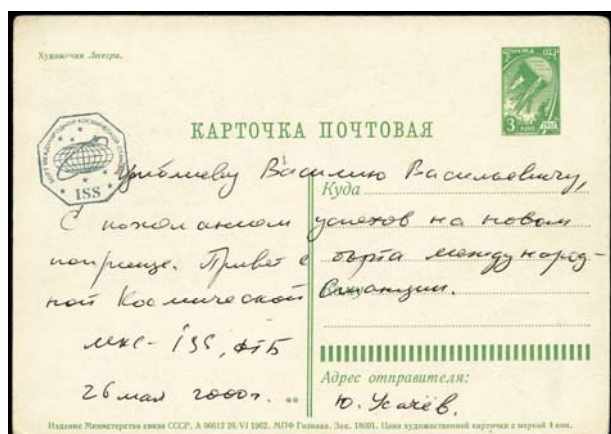 Художники Лесегри.
ПОЧТА СССР
3 коп
1961
БОРТ МЕЖДУНАРОДНОЙ КОСМИЧЕСКОЙ СТАНЦИИ
ISS
КАРТОЧКА ПОЧТОВАЯ
Циблиеву Василию Васильевичу,
Куда
С пожеланием успехов на новом
поприще. Привет с борта международ-
ной Космической Станции.
мкс - ISS, ФГБ
26 мая 2000г.
Адрес отправителя:
Ю. Усачёв.
Издание Министерства связи СССР. А 06612 26/VI 1962. МПФ Гознака. Зак. 18091. Цена художественной карточки с маркой 4 коп.